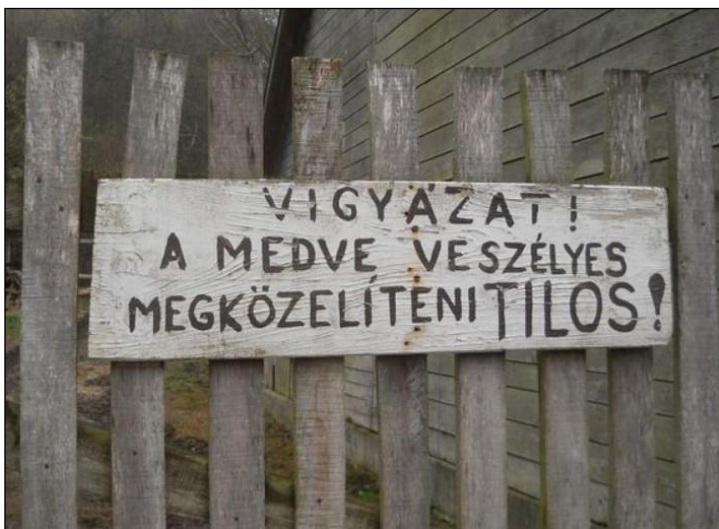 VIGYÁZAT!
A MEDVE VESZÉLYES
MEGKÖZELÍTENI TILOS!